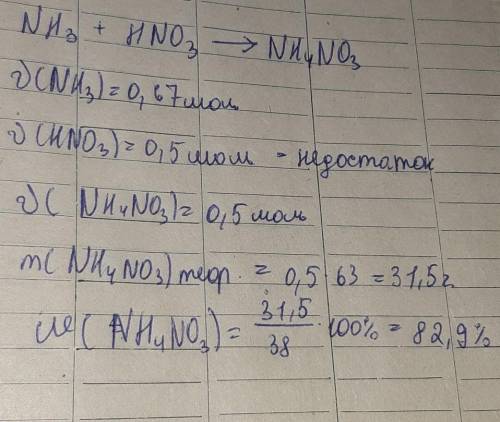 NH₃ + HNO₃ → NH₄NO₃
ν(NH₃) = 0,67 моль
ν(HNO₃) = 0,5 моль - недостаток
ν( NH₄NO₃) = 0,5 моль
m( NH₄NO₃) теор. = 0,5 · 63 = 31,5 г.
(NH₄NO₃) = 31,5/38 · 100% = 82,9%